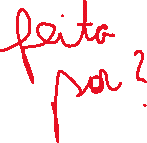 feita
por?